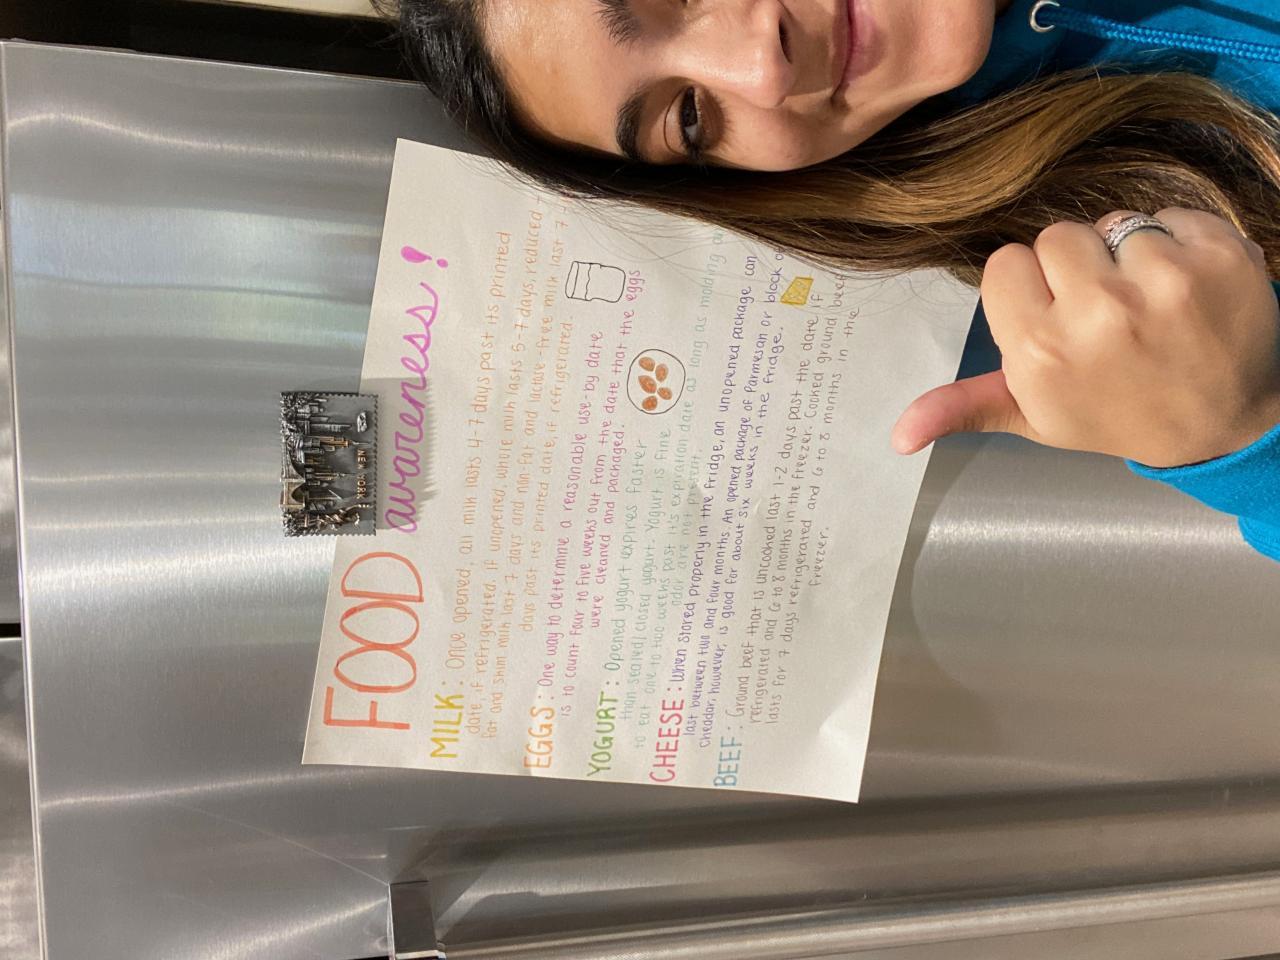 NEW YORK
FOOD awareness!
MILK: Once opened, all milk lasts 4-7 days past its printed
date, if refrigerated. If unopened, whole milk lasts 5-7 days, reduced -
fat and skim milk last 7 days and non-fat and lactose-free milk last 7-
days past its printed date, if refrigerated.
EGGS: One way to determine a reasonable use-by date
is to count four to five weeks out from the date that the eggs
were cleaned and packaged.
YOGURT: Opened yogurt expires faster
than sealed/closed yogurt. Yogurt is fine
to eat one to two weeks past it's expiration date as long as molding
odor are not present.
CHEESE: When stored properly in the fridge, an unopened package can
last between two and four months. An opened package of Parmesan or block of
cheddar, however, is good for about six weeks in the fridge.
BEEF: Ground beef that is uncooked last 1-2 days past the date if
refrigerated and 6 to 8 months in the freezer. Cooked ground beef
lasts for 7 days refrigerated and 6 to 8 months in the
freezer.